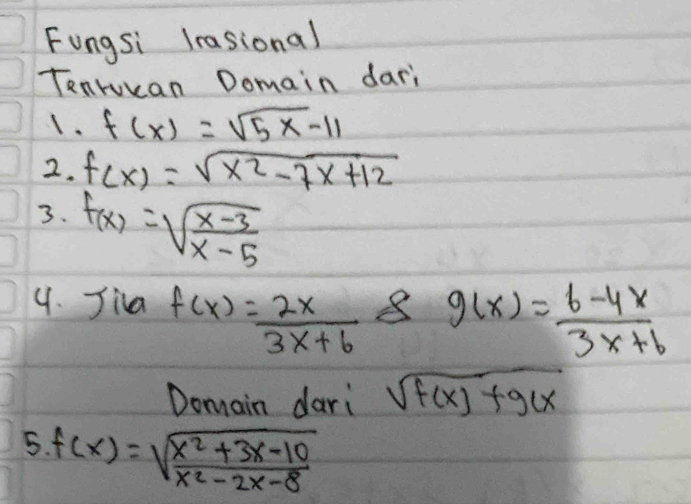 Fungsi Irasional
Tentukan Domain dari
1. f(x) = √5x-11
2. f(x) = √x2-7x+12
3. f(x) = √x-3/x-5
4. Jika f(x) = 2x/3x+6 & g(x) = 6-4x/3x+6
Domain dari √f(x)+g(x
5. f(x) = √x2+3x-10/x2-2x-8